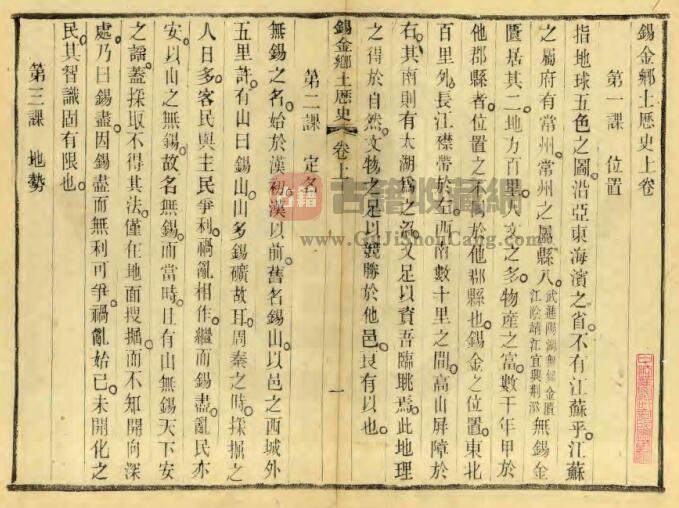 錫金鄉土歷史上卷
第一課 位置
指地球五色之圖沿亞東海濱之省不有江蘇乎江蘇
之屬府有常州常州之屬縣八武進陽湖無錫金匱江陰靖江宜興荊溪無錫金
匱居其二地方百里人文之多物産之富數千年甲於
他郡縣者位置之不同於他郡縣也錫金之位置東北
百里外長江襟帶於左西南數十里之間高山屏障於
右其南則有太湖爲之浸又足以資吾臨眺焉此地理
之得於自然文物之足以競勝於他邑良有以也
錫金鄉土歷史 卷上 一
第二課 定名
無錫之名始於漢初漢以前舊名錫山以邑之西城外
五里許有山曰錫山山多錫礦故耳周秦之時採掘之
人日多客民與主民爭利禍亂相作繼而錫盡亂民亦
安以山之無錫故名無錫而當時且有山無錫天下安
之謠蓋採取不得其法僅在地面搜掘而不知開向深
處乃曰錫盡因錫盡而無利可爭禍亂始已未開化之
民其智識固有限也
第三課 地勢
古籍
古籍收藏網
www.GuJiShouCang.com